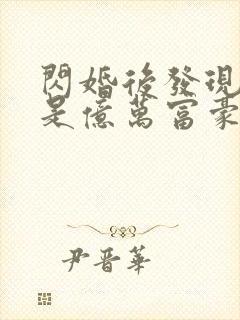 閃婚後發現
是億萬富豪
尹晋華